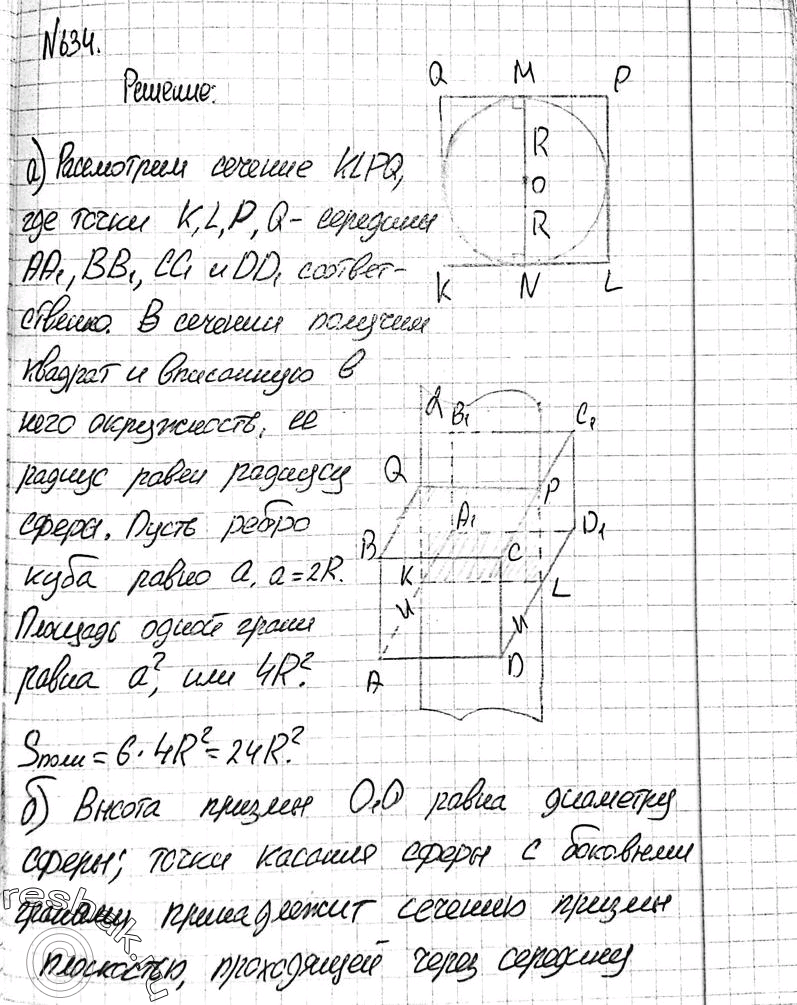 N634.
Решение:
Q M P
R
O
R
K N L
а) Рассмотрим сечение KLPQ,
где точки K, L, P, Q - середины
AA₁, BB₁, CC₁ и DD₁ соответ-
ственно. В сечении получим
квадрат и вписанную в
него окружность, ее
радиус равен радиусу
сферы. Пусть ребро
куба равно a, a=2R.
Площадь одной грани
равна a², или 4R².
α B₁ C₁
Q P
A₁ D₁
B C
K L
A D
Sполн = 6·4R² = 24R².
б) Высота призмы O₁O равна диаметру
сферы; точки касания сферы с боковыми
гранями принадлежит сечению призмы
плоскостью, проходящей через середину
reshak.ru